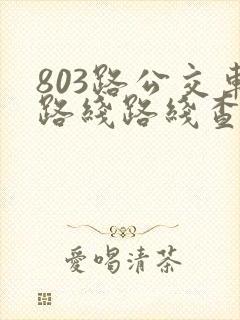 803路公交車
路綫路綫查
愛喝清茶